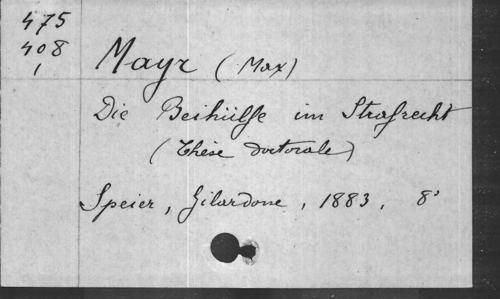 475
408
1
Mayr (Max)
Die Beihülfe im Strafrecht
(Thèse doctorale)
Speier, Gilardone, 1883, 8°